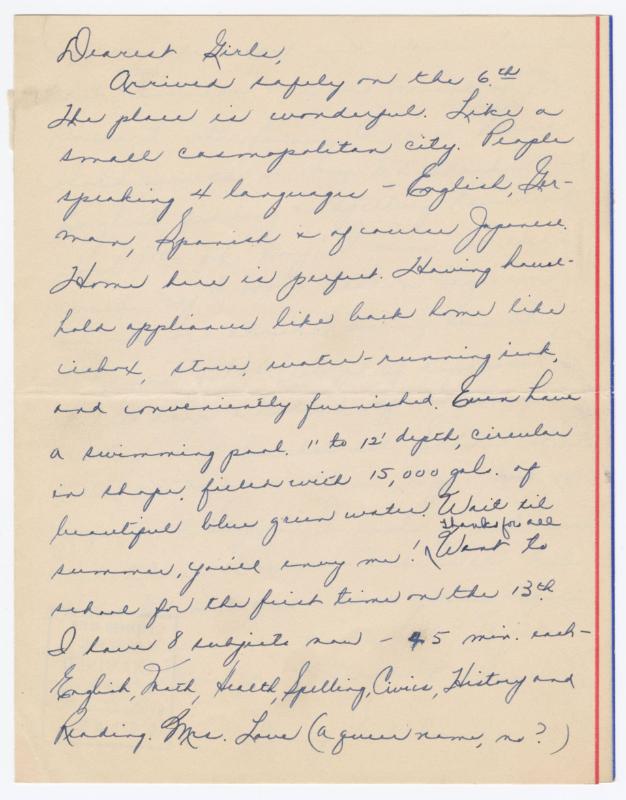 Dearest Girls,
Arrived safely on the 6th
The place is wonderful. Like a
small cosmopolitan city. People
speaking 4 languages - English, Ger-
man, Spanish & of course Japanese.
Home here is perfect. Having house-
hold appliances like back home like
icebox, stove, water-running sink,
and conveniently furnished. Even have
a swimming pool. 1" to 12' depth, circular
in shape, filled with 15,000 gals. of
beautiful blue green water. Wait til
summer, you'll envy me! Thanks for all
Went to
school for the first time on the 13th.
I have 8 subjects now - 45 min. each -
English, Math, Health, Spelling, Civics, History and
Reading. Mrs. Love (a queer name, no?)